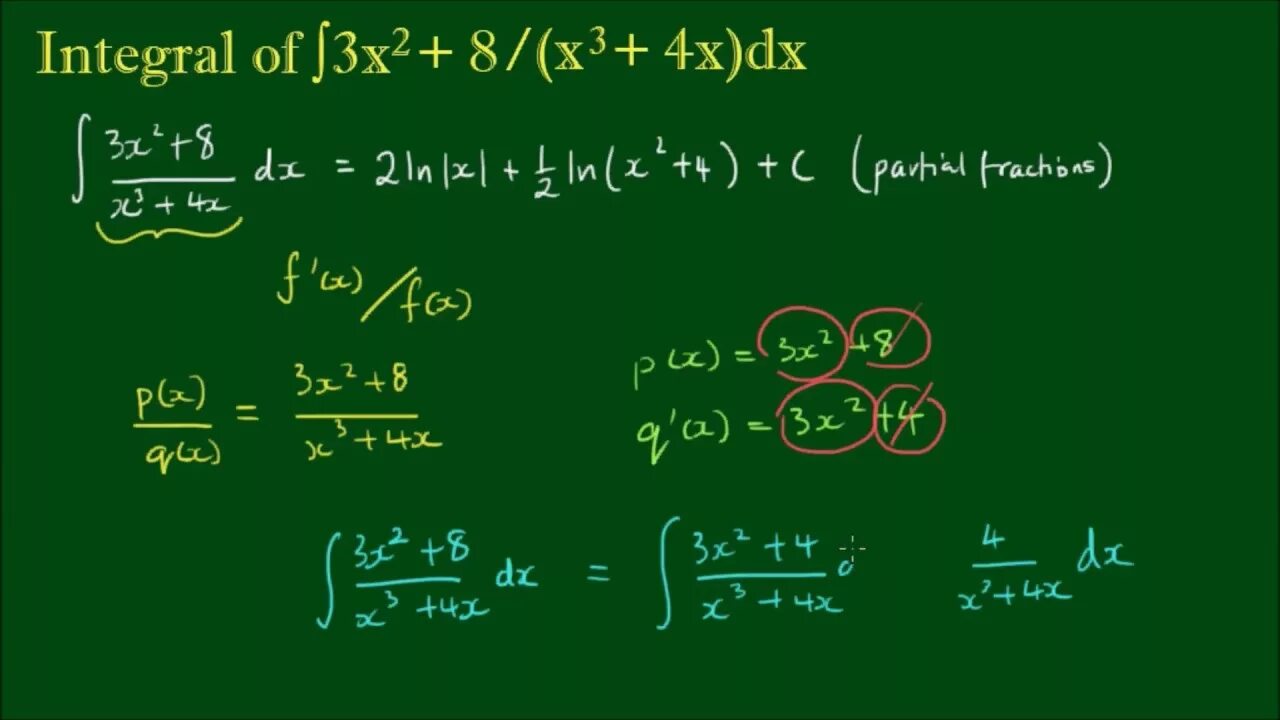 Integral of ∫3x² + 8/(x³ + 4x)dx
∫ (3x² + 8)/(x³ + 4x) dx = 2ln|x| + ½ ln(x² + 4) + C (partial fractions)
f'(x)/f(x)
p(x)/q(x) = (3x² + 8)/(x³ + 4x)
p(x) = 3x² + 8
q'(x) = 3x² + 4
∫ (3x² + 8)/(x³ + 4x) dx = ∫ (3x² + 4)/(x³ + 4x) 4/(x³ + 4x) dx